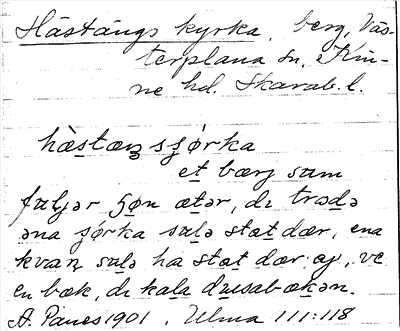 Hästängs kyrka, berg, Väs-
terplana sn, Kin-
ne hd. Skarab. l.
hàstæŋsʃørka
et bærj sum
fæljər ətər, di trodə
əna ʃørka sulə stat dær, ena
kvaṇ sulə ha stat dær ,
en bæk, di kala
A. Pånes 1901. Ulma 111:118